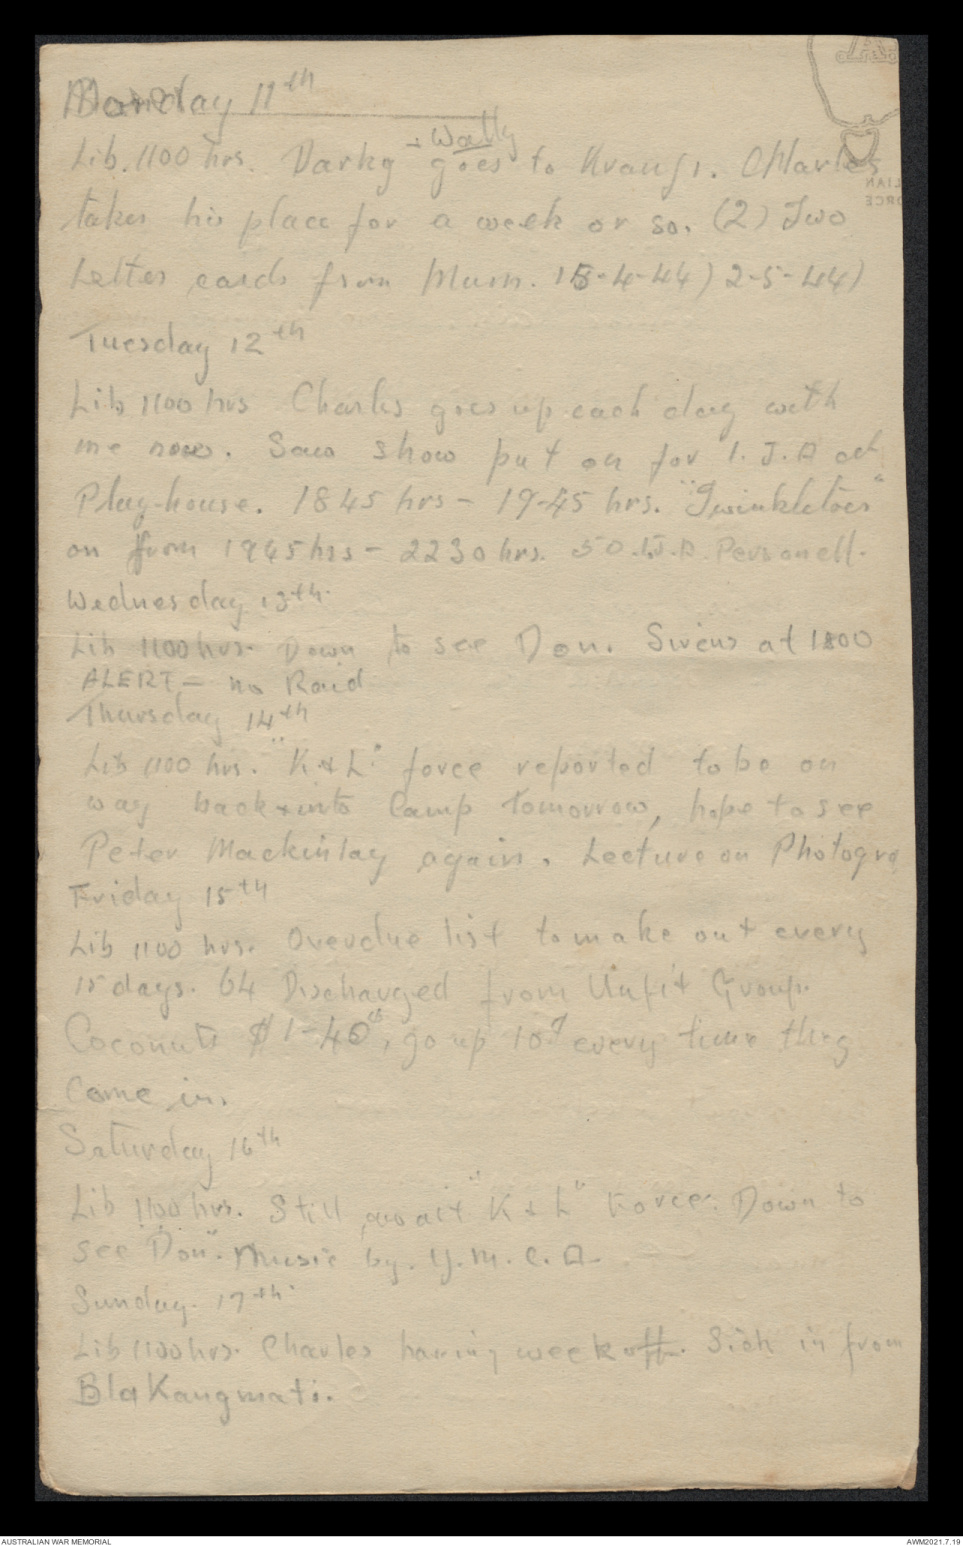 Monday 11th
+ Wally
Lib. 1100 hrs. Darky goes to Kranji. Charles
takes his place for a week or so. (2) Two
Letter cards from Mum. 15-4-44) 2-5-44)
Tuesday 12th
Lib 1100 hrs Charles goes up each day with
me now. Saw show put on for I.J.A at
Play-house. 1845 hrs - 1945 hrs. "Twinkletoes"
on from 1945hrs - 2230 hrs. 50 I.J.A. Personell.
Wednesday 13th.
Lib 1100 hrs. Down to see Don. Sirens at 1800
ALERT - no Raid
Thursday 14th
Lib 1100 hrs. "K & L" force reported to be on
way back & into Camp tomorrow, hope to see
Peter Mackinlay again. Lecture on Photogra
Friday 15th
Lib 1100 hrs. Overdue list to make out every
15 days. 64 Discharged from Unfit Group.
Coconuts $1-40cs, go up 10¢ every time they
Come in.
Saturday 16th
Lib 1100 hrs. Still await "K & L" Force. Down to
see "Don". Music by. Y.M.C.A.
Sunday. 17th.
Lib 1100 hrs. Charles having week off. Sick in from
Bla Kangmati.
AUSTRALIAN WAR MEMORIAL
AWM2021.7.19